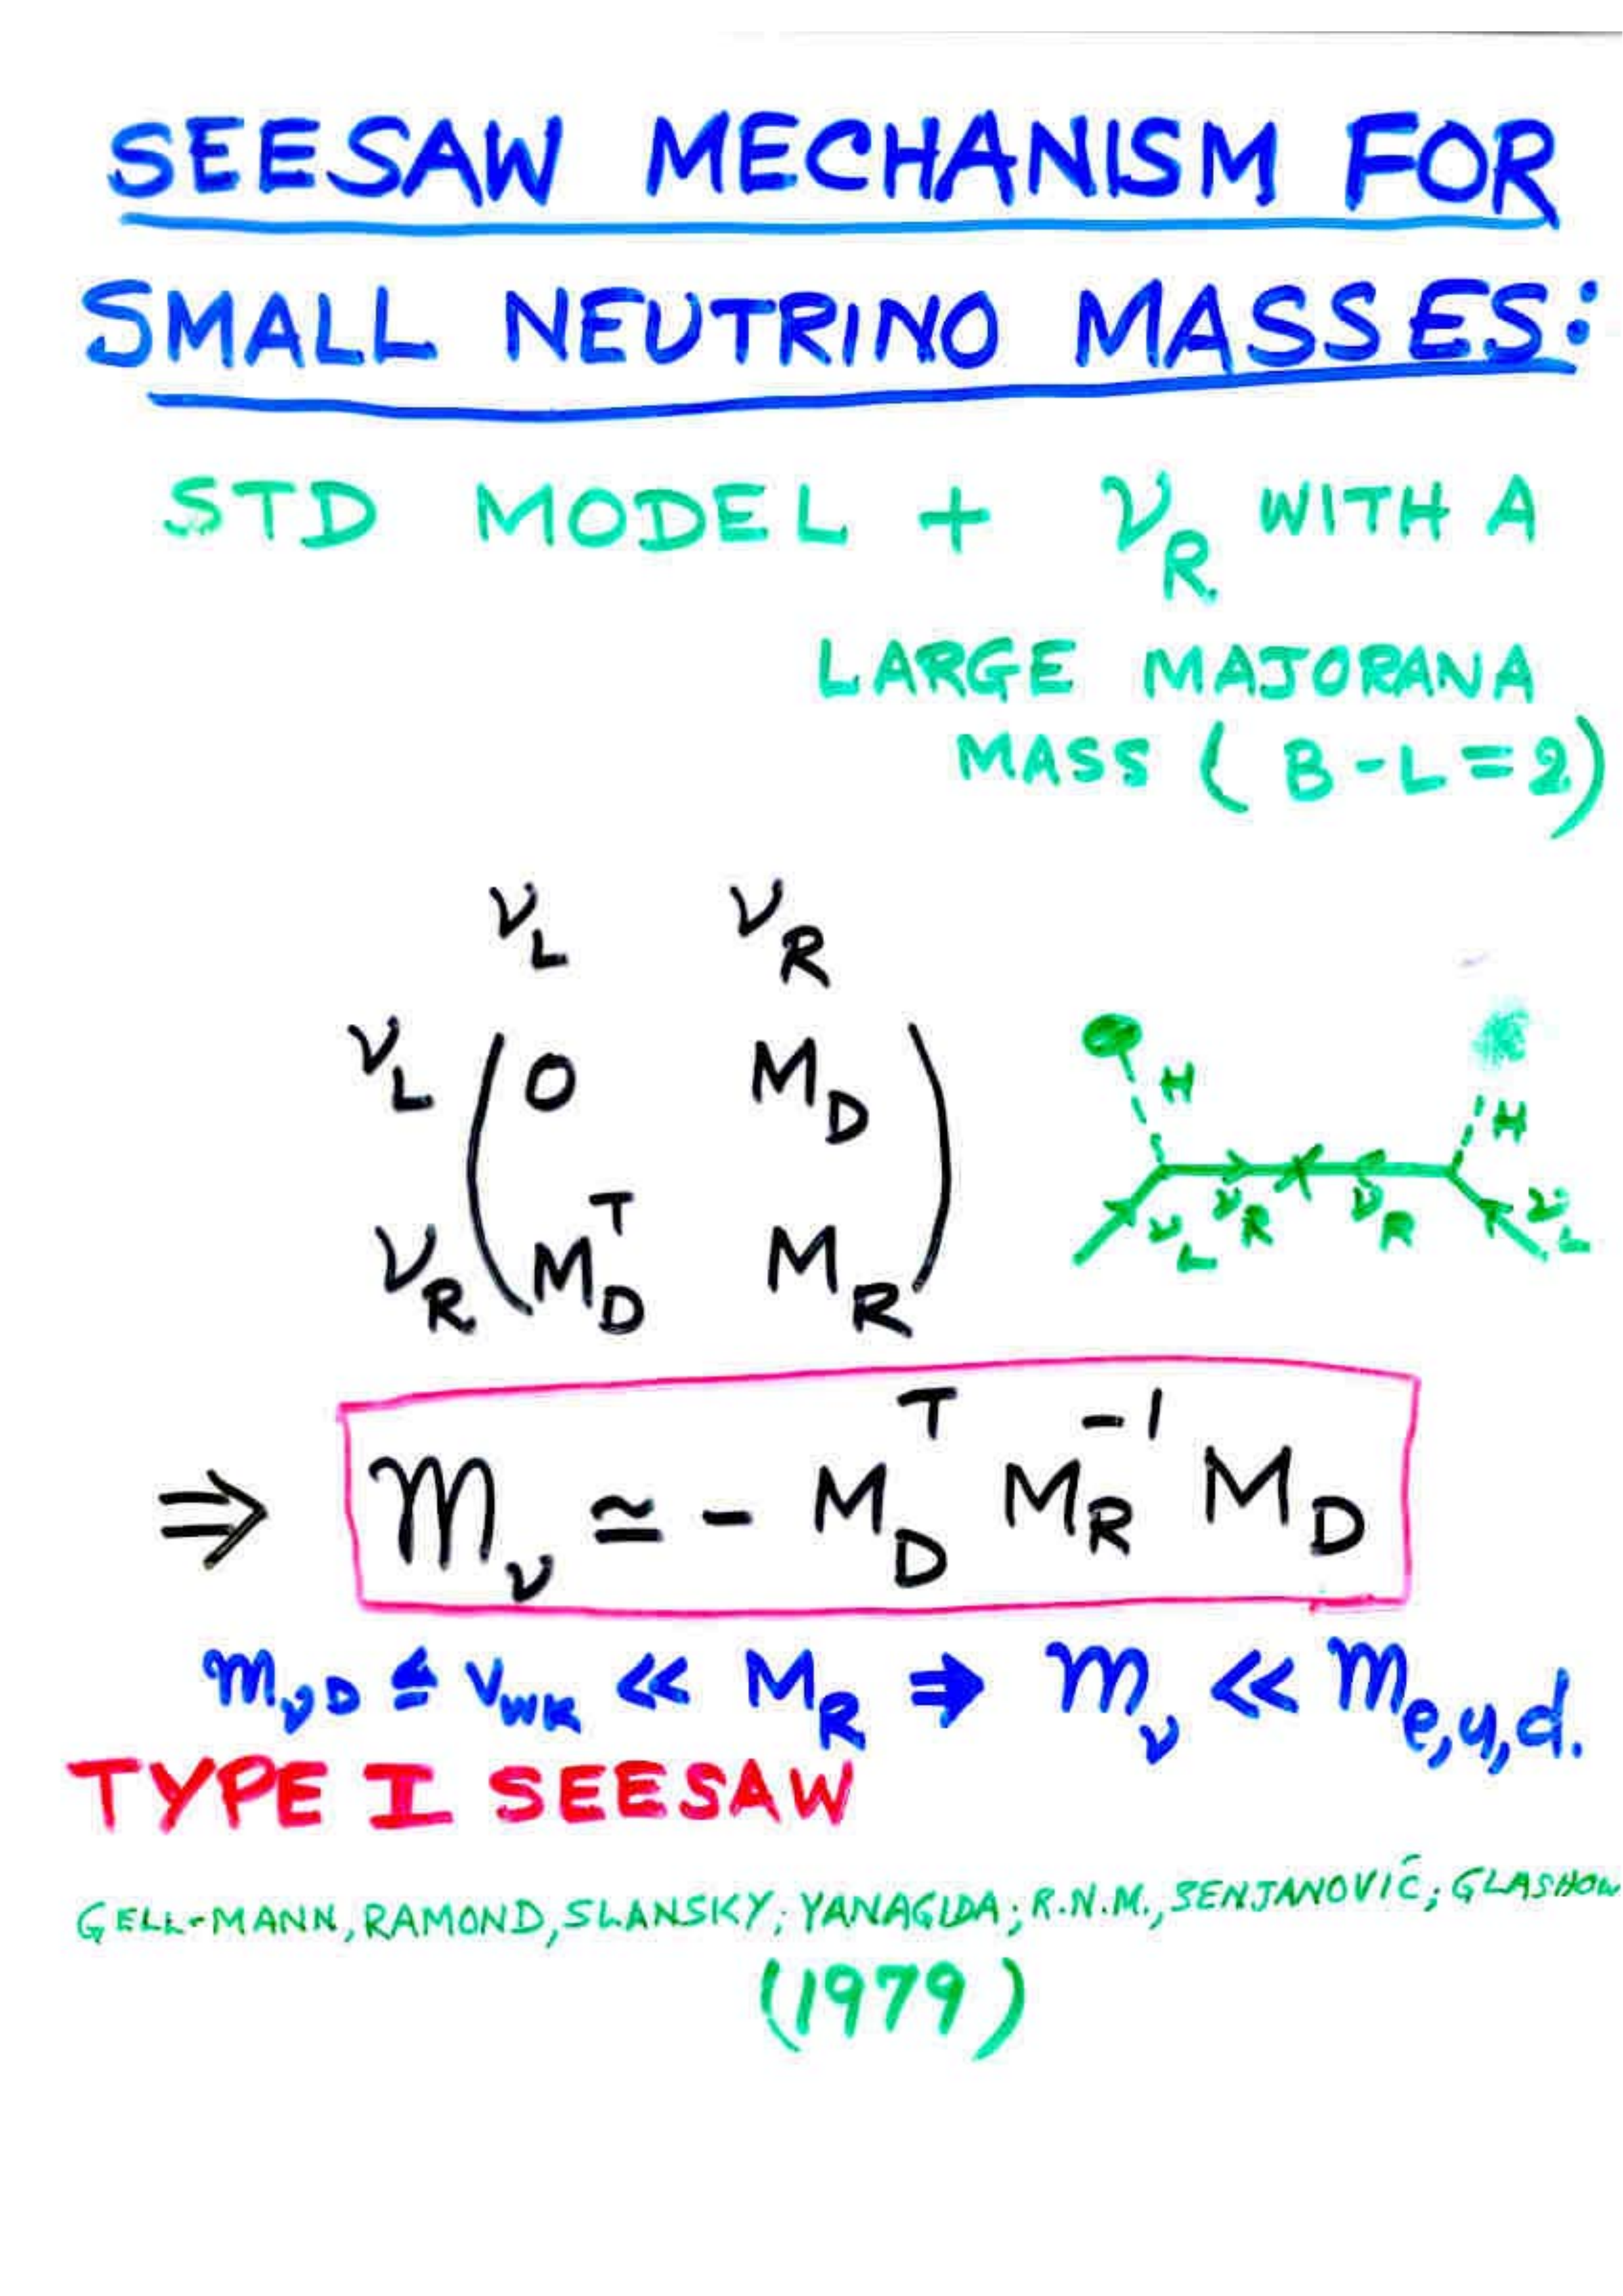 SEESAW MECHANISM FOR
SMALL NEUTRINO MASSES:
STD MODEL + ν_R WITH A
LARGE MAJORANA
MASS (B-L=2)
ν_L ν_R
ν_L ( 0 M_D )
ν_R ( M_D^T M_R )
H H
ν_L ν_R ν_R ν_L
⇒ m_ν ≃ - M_D^T M_R^-1 M_D
m_νD ≤ v_wk << M_R ⇒ m_ν << m_e,u,d.
TYPE I SEESAW
GELL-MANN, RAMOND, SLANSKY; YANAGIDA; R.N.M., SENJANOVIĆ; GLASHOW
(1979)